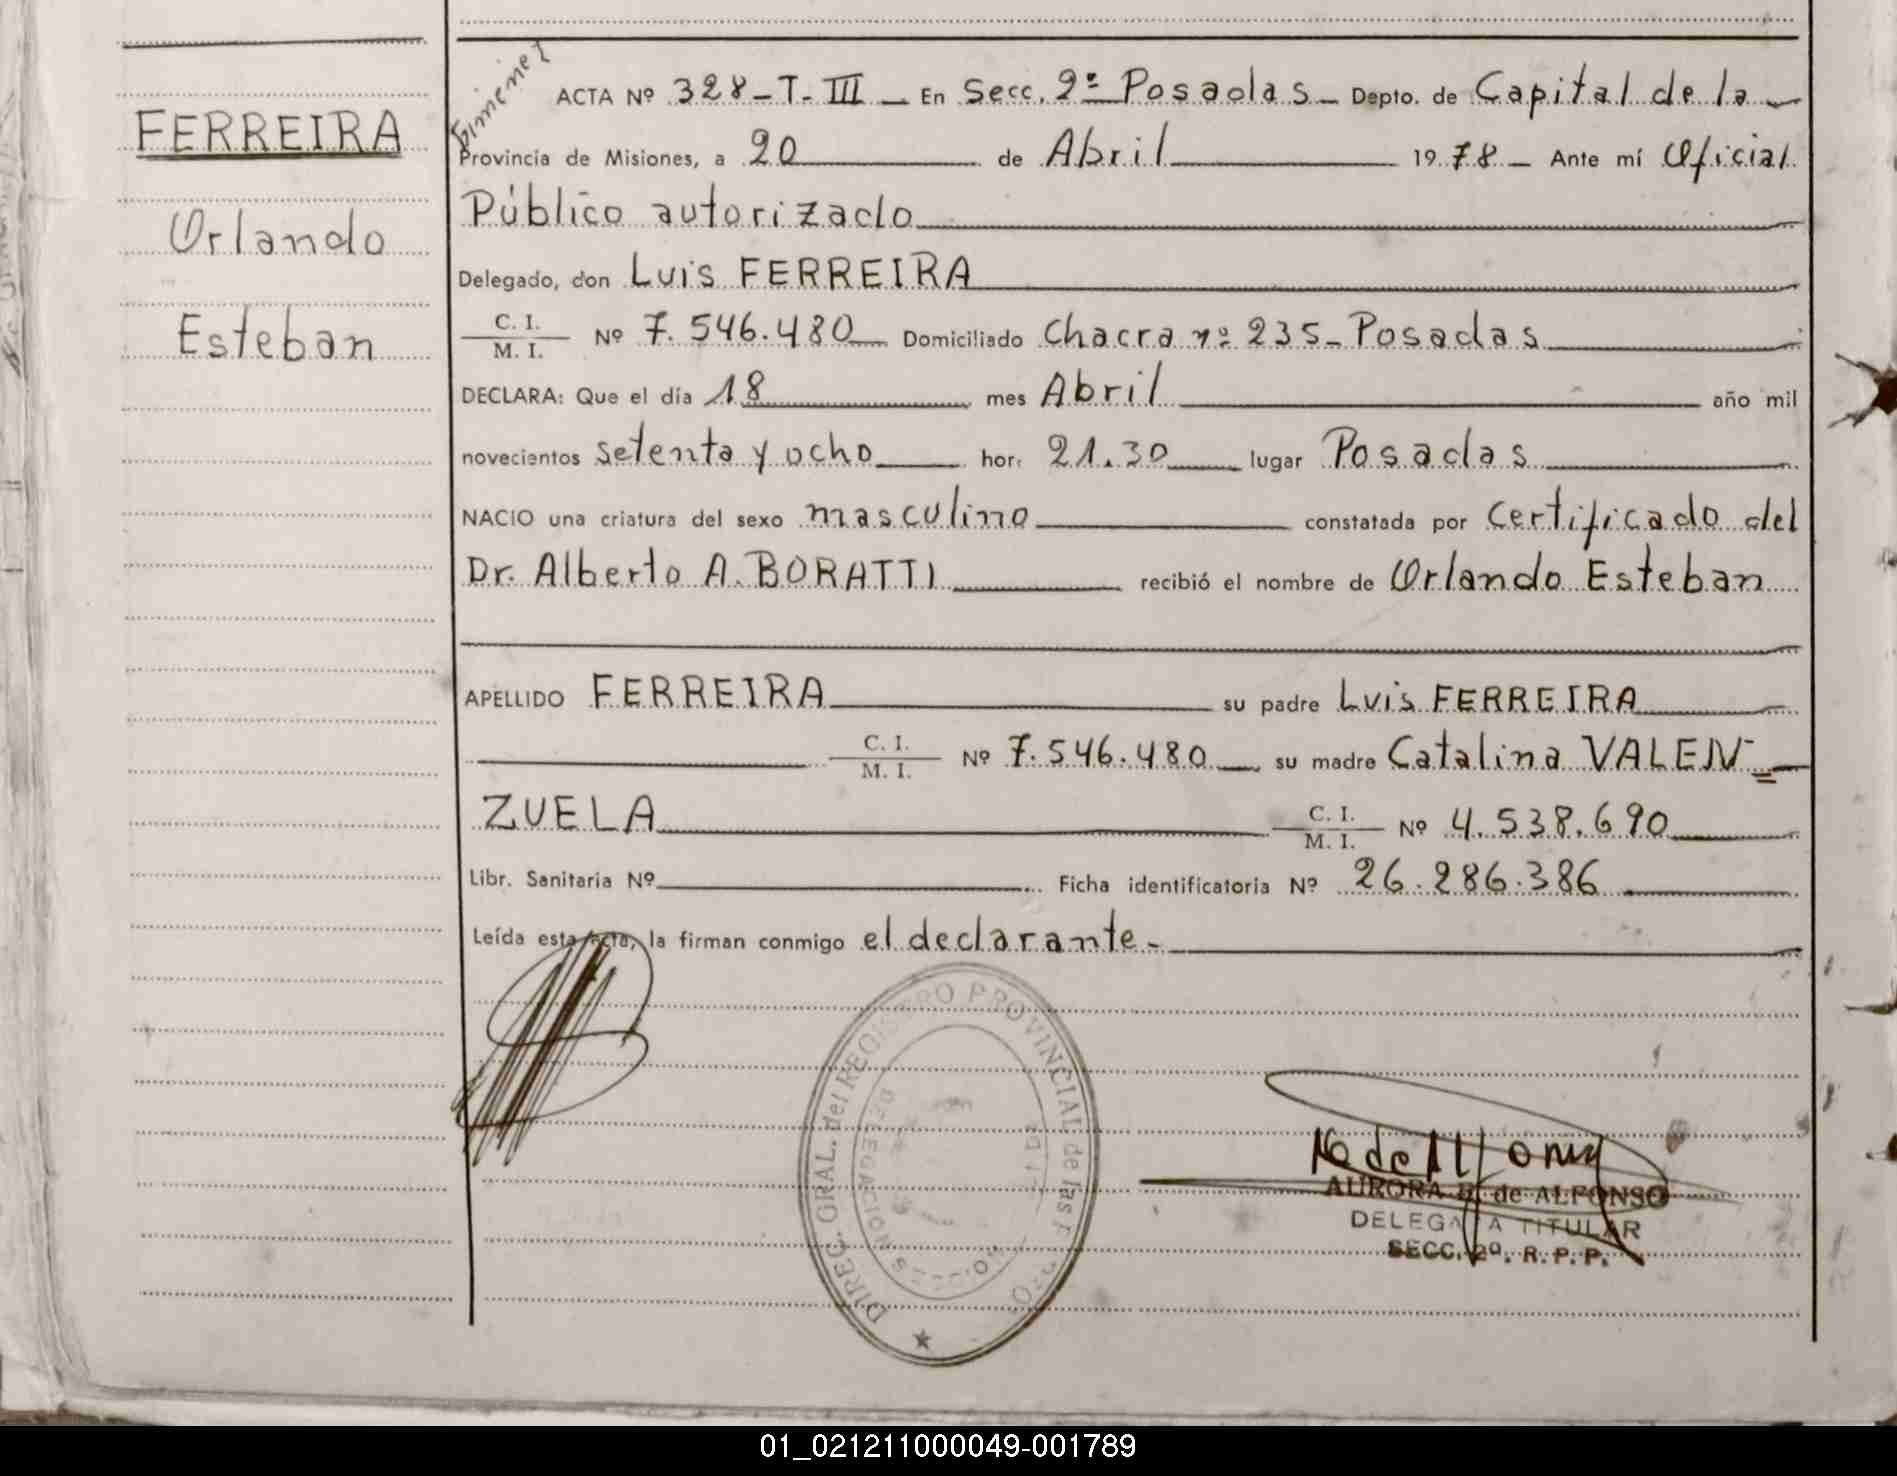 FERREIRA
Orlando
Esteban
ACTA Nº 328-T-III - En Secc. 2ª Posadas - Depto. de Capital de la
Provincia de Misiones, a 20 de Abril 1978 - Ante mí Oficial
Público autorizado
Delegado, don Luis FERREIRA
C. I. / M. I. Nº 7.546.480 Domiciliado Chacra nº 235 - Posadas
DECLARA: Que el día 18 mes Abril año mil
novecientos setenta y ocho hor: 21.30 lugar Posadas
NACIO una criatura del sexo masculino constatada por Certificado del
Dr. Alberto A. BORATTI recibió el nombre de Orlando Esteban
APELLIDO FERREIRA su padre Luis FERREIRA
C. I. / M. I. Nº 7.546.480 su madre Catalina VALEN-
ZUELA C. I. / M. I. Nº 4.538.690
Libr. Sanitaria Nº Ficha identificatoria Nº 26.286.386
Leída esta acta, la firman conmigo el declarante -
DIREC. GRAL. del REGISTRO PROVINCIAL de las P
DELEGACION
AURORA B. de ALFONSO
DELEGADA TITULAR
SECC. 2º. R. P. P.
01_021211000049-001789